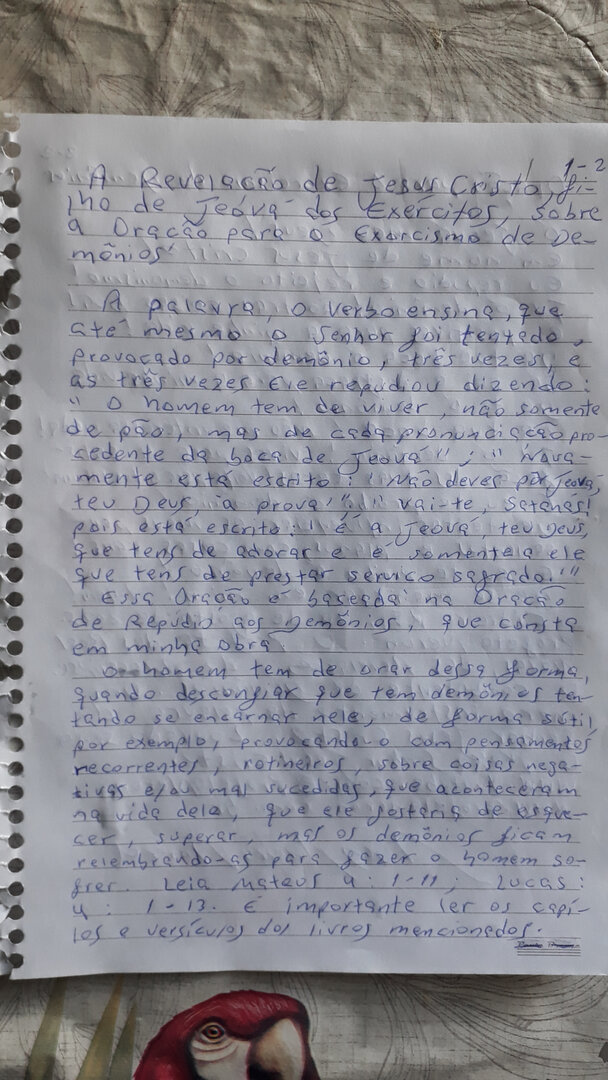 1-2
A Revelação de Jesus Cristo, fi-
lho de Jeová dos Exércitos, sobre
a Oração para o Exorcismo de De-
mônios
A palavra, o verbo ensina, que
até mesmo o Senhor foi tentado,
provocado por demônio, três vezes, e
as três vezes Ele repudiou dizendo:
" O homem tem de viver, não somente
de pão, mas de cada pronunciação pro-
cedente da boca de Jeová"; " Nova-
mente está escrito: 'Não deves pôr Jeová,
teu Deus, à prova'"; " Vai-te, Satanás!
pois está escrito: 'É a Jeová, teu Deus,
que tens de adorar e é somente a ele
que tens de prestar serviço sagrado.'"
Essa Oração é baseada na Oração
de Repúdio aos Demônios, que consta
em minha obra.
O homem tem de orar dessa forma,
quando desconfiar que tem demônios ten-
tando se encarnar nele, de forma sútil,
por exemplo, provocando-o com pensamentos
recorrentes, rotineiros, sobre coisas nega-
tivas e/ou mal sucedidas, que aconteceram
na vida dele, que ele gostaria de esque-
cer, superar, mas os demônios ficam
relembrando-as para fazer o homem so-
frer. Leia Mateus 4:1-11; Lucas:
4: 1-13. É importante ler os capí-
los e versículos dos livros mencionados.